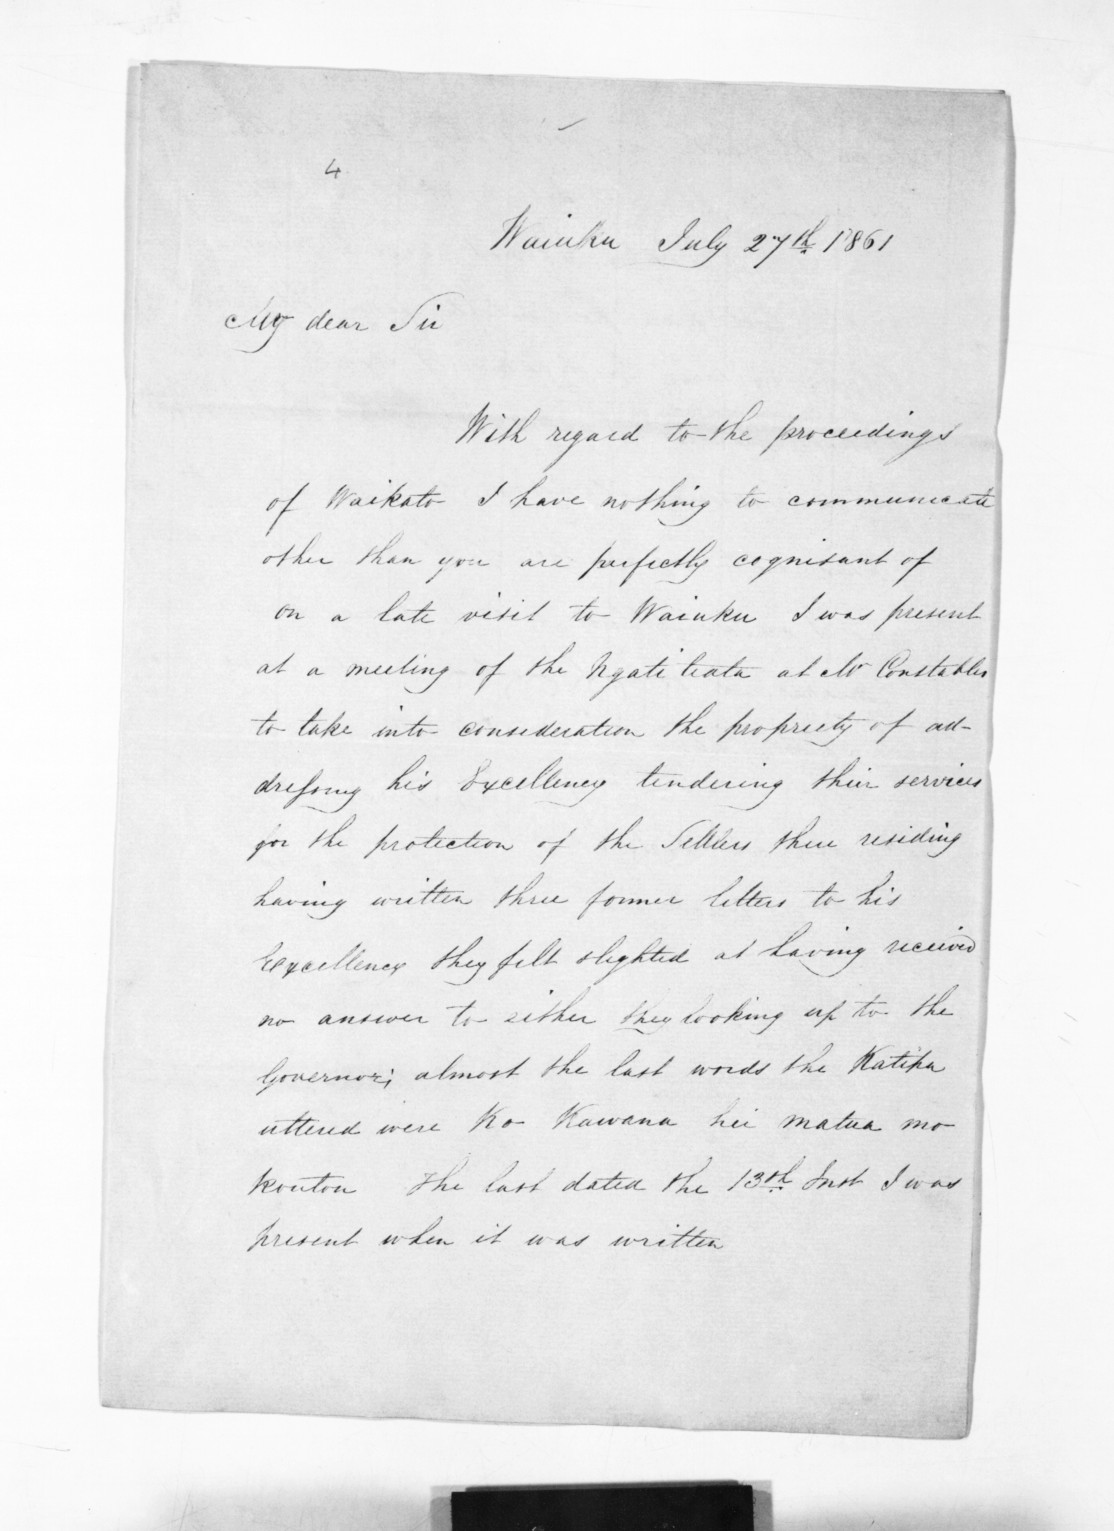 4
Waiuku July 27th 1861
My dear Sir
With regard to the proceedings
of Waikato I have nothing to communicate
other than you are perfectly cognisant of
on a late visit to Waiuku I was present
at a meeting of the Ngatiteata at Mr Constables
to take into consideration the propriety of ad-
dressing his Excellency tendering their services
for the protection of the Settlers there residing
having written three former letters to his
Excellency they felt slighted at having received
no answer to either they looking up to the
Governor; almost the last words the Katipa
uttered were Ko Kawana hei matua mo
koutou The last dated the 13th Inst I was
present when it was written